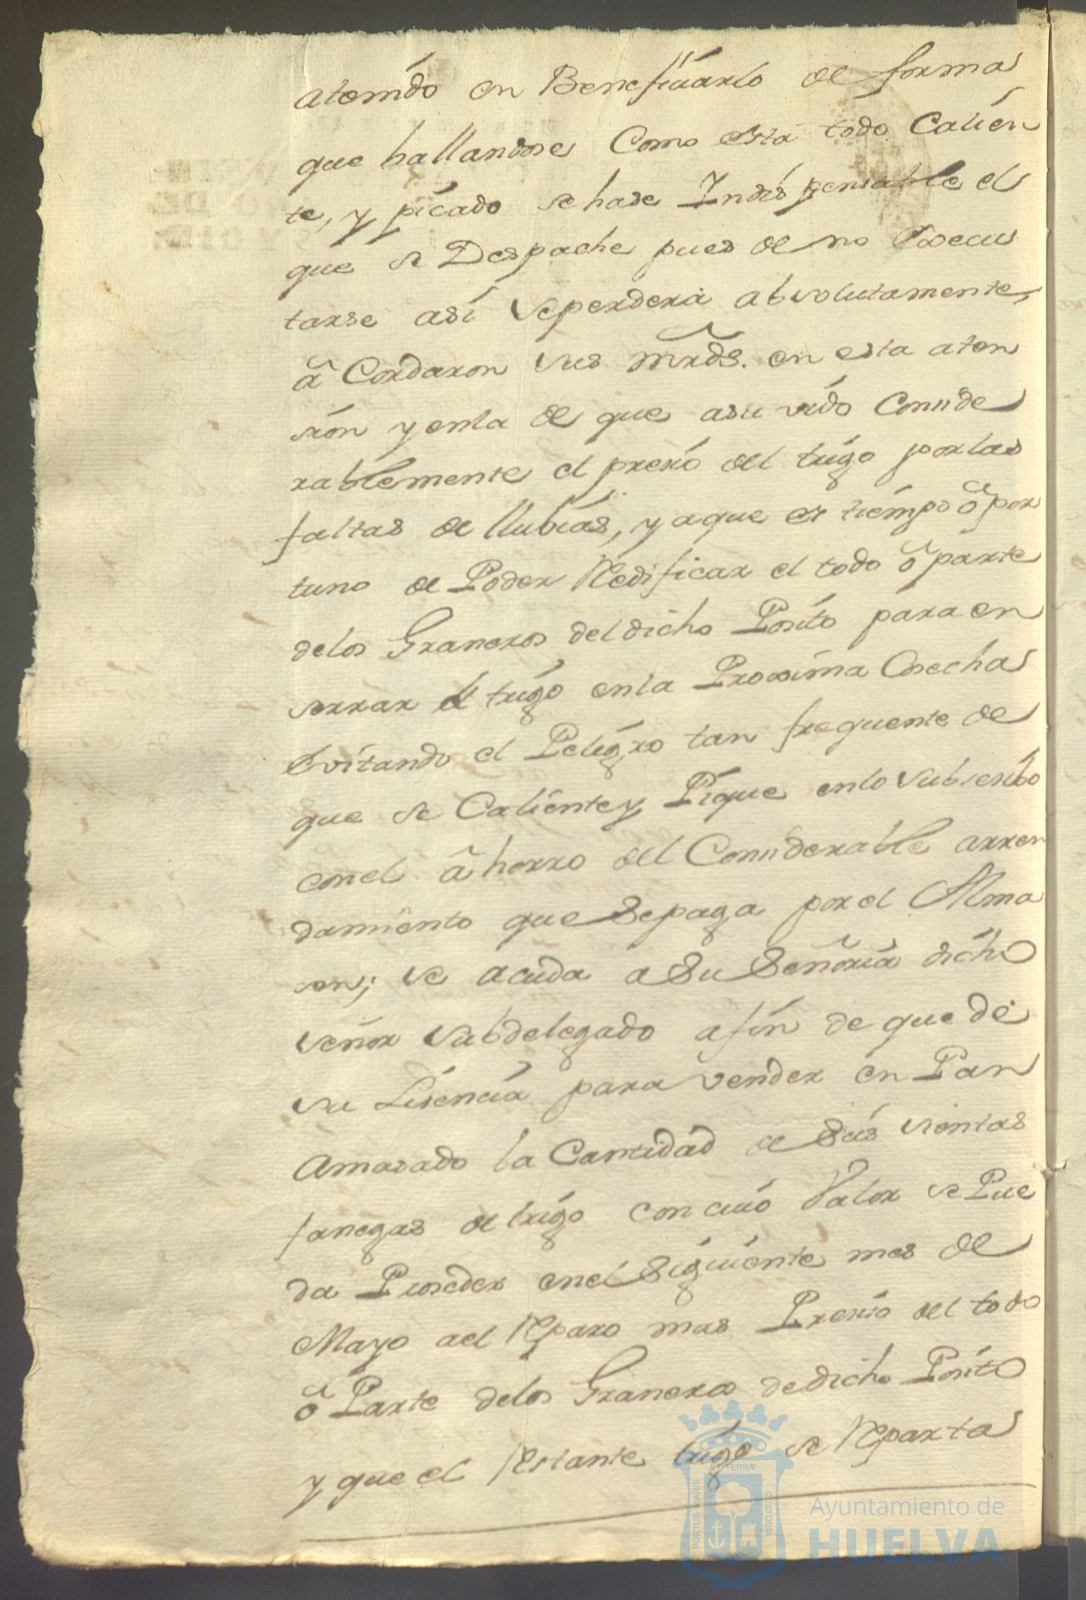 atenido en Beneficiarlo de forma
que hallandose Como está todo Calien
te, y picado se hase Indispensable el
que se Despache pues de no Execu
tarse así se perderá absolutamente,
â Cordaron sus mrds. en esta aten
sion y enla de que a su vido Conside
rablemente el presio del trigo por las
faltas de llubias, y a que es tiempo ô por
tuno de Poder Redificar el todo ô parte
delos Graneros del dicho Posito para en
serrar el trigo enla Proxima Cosecha
Evitando el Peligro tan frequente de
que se Caliente y Pique enlo Subsesibo
con el â horro del Considerable arren
damiento que Se paga por el Alma
sen; se acuda a Su Señoria dicho
señor Subdelegado a fin de que de
su Lisencia para vender en Pan
Amasado la Cantidad de Seis sientas
fanegas de trigo con cuio Valor se Pue
da Proseder en el Siguiente mes de
Mayo a el Reparo mas Presio del todo
ô Parte delos Graneros de dicho Posito
y que el Restante trigo se Reparta
Ayuntamiento de
HUELVA